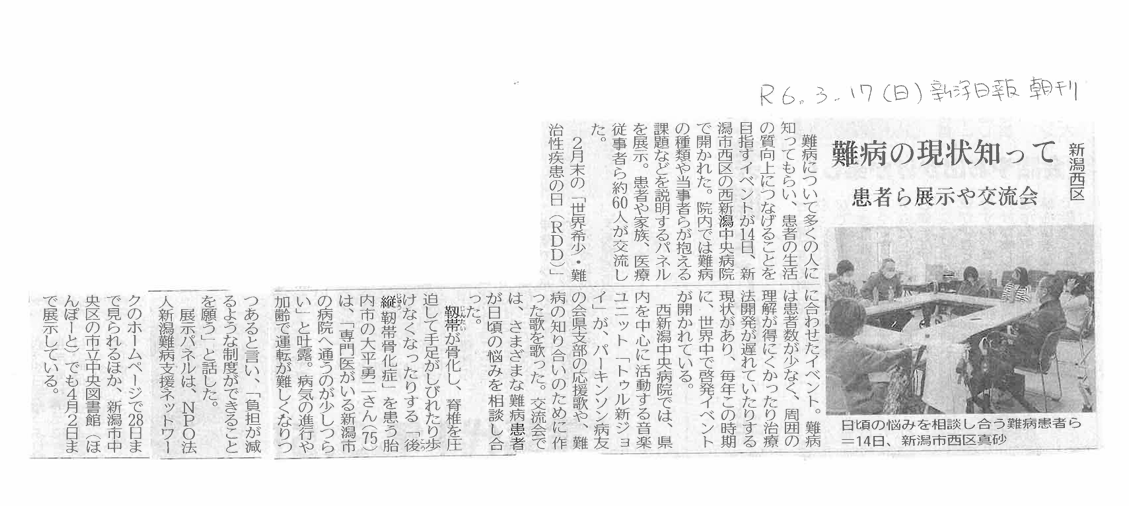 R6.3.17(日) 新潟日報 朝刊
新潟西区
難病の現状知って
患者ら展示や交流会
難病について多くの人に
知ってもらい、患者の生活
の質向上につなげることを
目指すイベントが14日、新
潟市西区の西新潟中央病院
で開かれた。院内では難病
の種類や当事者らが抱える
課題などを説明するパネル
を展示。患者や家族、医療
従事者ら約60人が交流し
た。
2月末の「世界希少・難
治性疾患の日(RDD)」
に合わせたイベント。難病
は患者数が少なく、周囲の
理解が得にくかったり治療
法開発が遅れていたりする
現状があり、毎年この時期
に、世界中で啓発イベント
が開かれている。
西新潟中央病院では、県
内を中心に活動する音楽
ユニット「トゥル新ジョ
イ」が、パーキンソン病友
の会県支部の応援歌や、難
病の知り合いのために作
った歌を歌った。交流会で
は、さまざまな難病患者
が日頃の悩みを相談し合
った。
靱帯が骨化し、脊椎を圧
迫して手足がしびれたり歩
けなくなったりする「後
縦靱帯骨化症」を患う胎
内市の大平勇二さん(75)
は、「専門医がいる新潟市
の病院へ通うのが少しつら
い」と吐露。病気の進行や
加齢で運転が難しくなりつ
つあると言い、「負担が減
るような制度ができること
を願う」と話した。
展示パネルは、NPO法
人新潟難病支援ネットワー
クのホームページで28日ま
で見られるほか、新潟市中
央区の市立中央図書館(ほ
んぽーと)でも4月2日ま
で展示している。
日頃の悩みを相談し合う難病患者ら
=14日、新潟市西区真砂